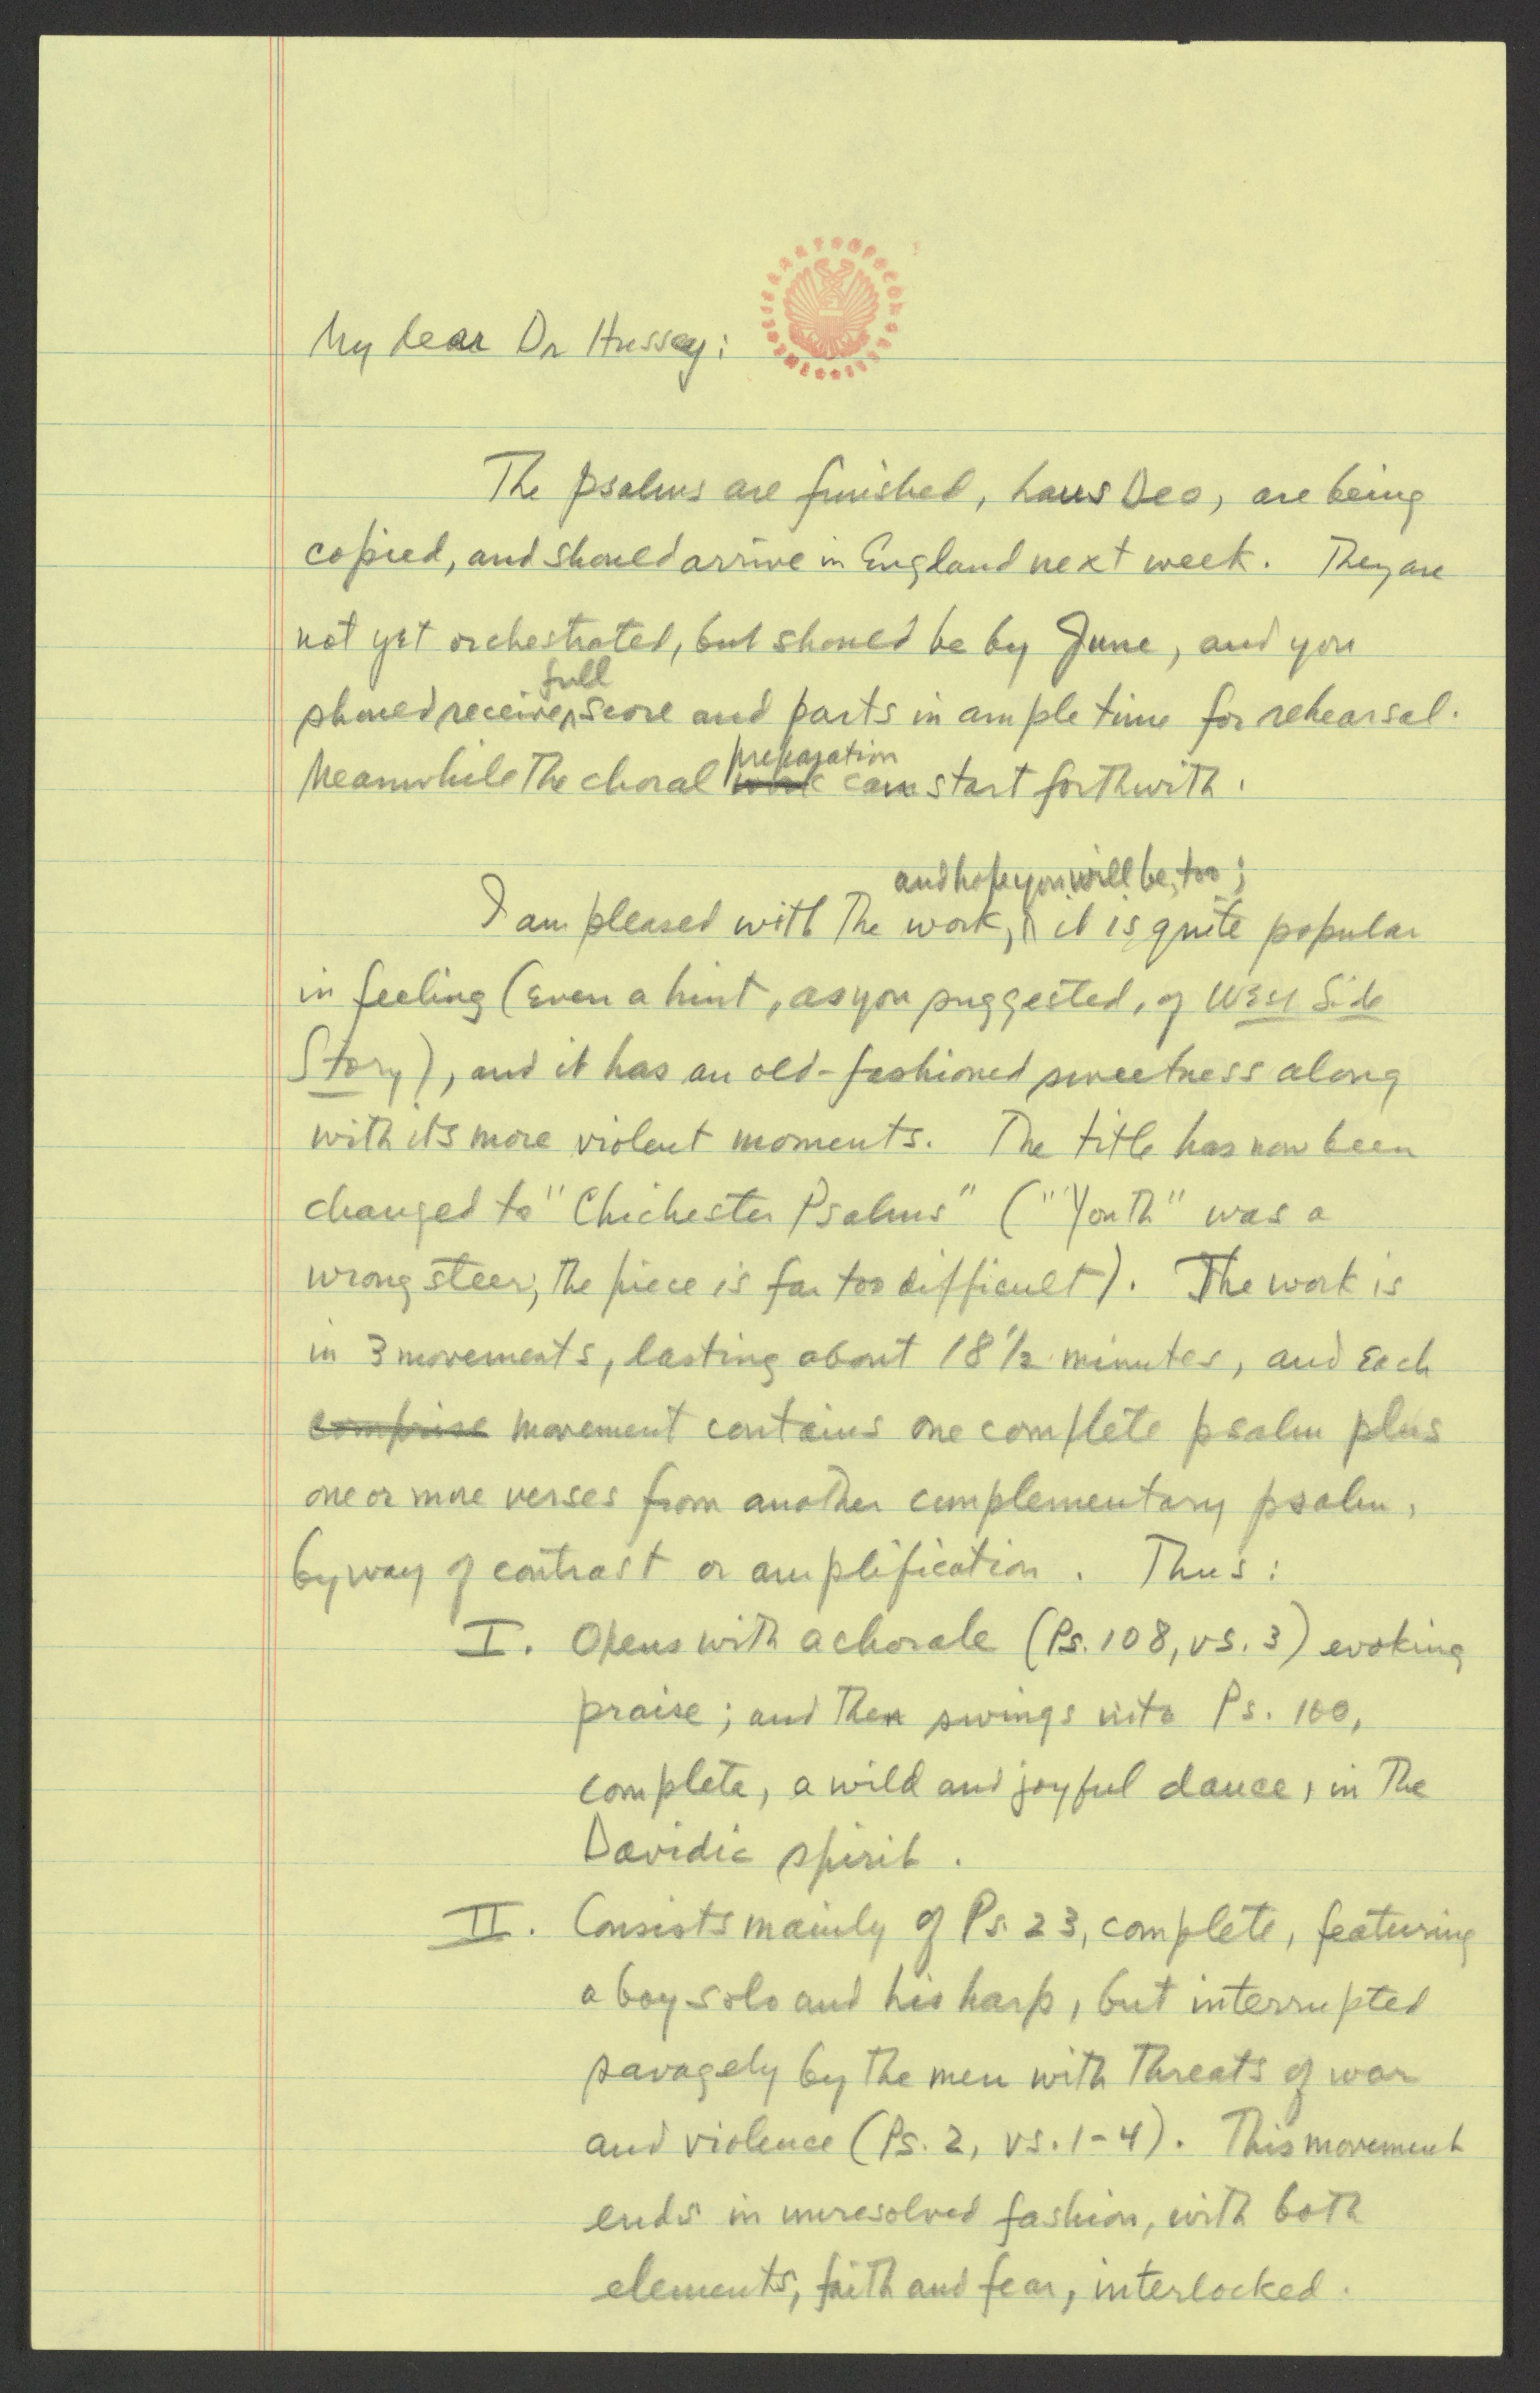 My dear Dr Hussey:
The psalms are finished, Laus Deo, are being
copied, and should arrive in England next week. They are
not yet orchestrated, but should be by June, and you
full
should receive ^ score and parts in ample time for rehearsal.
preparation
Meanwhile the choral work can start forthwith.
and hope you will be, too;
I am pleased with the work, ^ it is quite popular
in feeling (even a hint, as you suggested, of West Side
Story), and it has an old-fashioned sweetness along
with its more violent moments. The title has now been
changed to "Chichester Psalms" ("Youth" was a
wrong steer; the piece is far too difficult). The work is
in 3 movements, lasting about 18 1/2 minutes, and each
comprise movement contains one complete psalm plus
one or more verses from another complementary psalm,
by way of contrast or amplification. Thus:
I. Opens with a chorale (Ps. 108, vs. 3) evoking
praise; and then swings into Ps. 100,
complete, a wild and joyful dance, in the
Davidic spirit.
II. Consists mainly of Ps. 23, complete, featuring
a boy solo and his harp, but interrupted
savagely by the men with threats of war
and violence (Ps. 2, vs. 1-4). This movement
ends in unresolved fashion, with both
elements, faith and fear, interlocked.